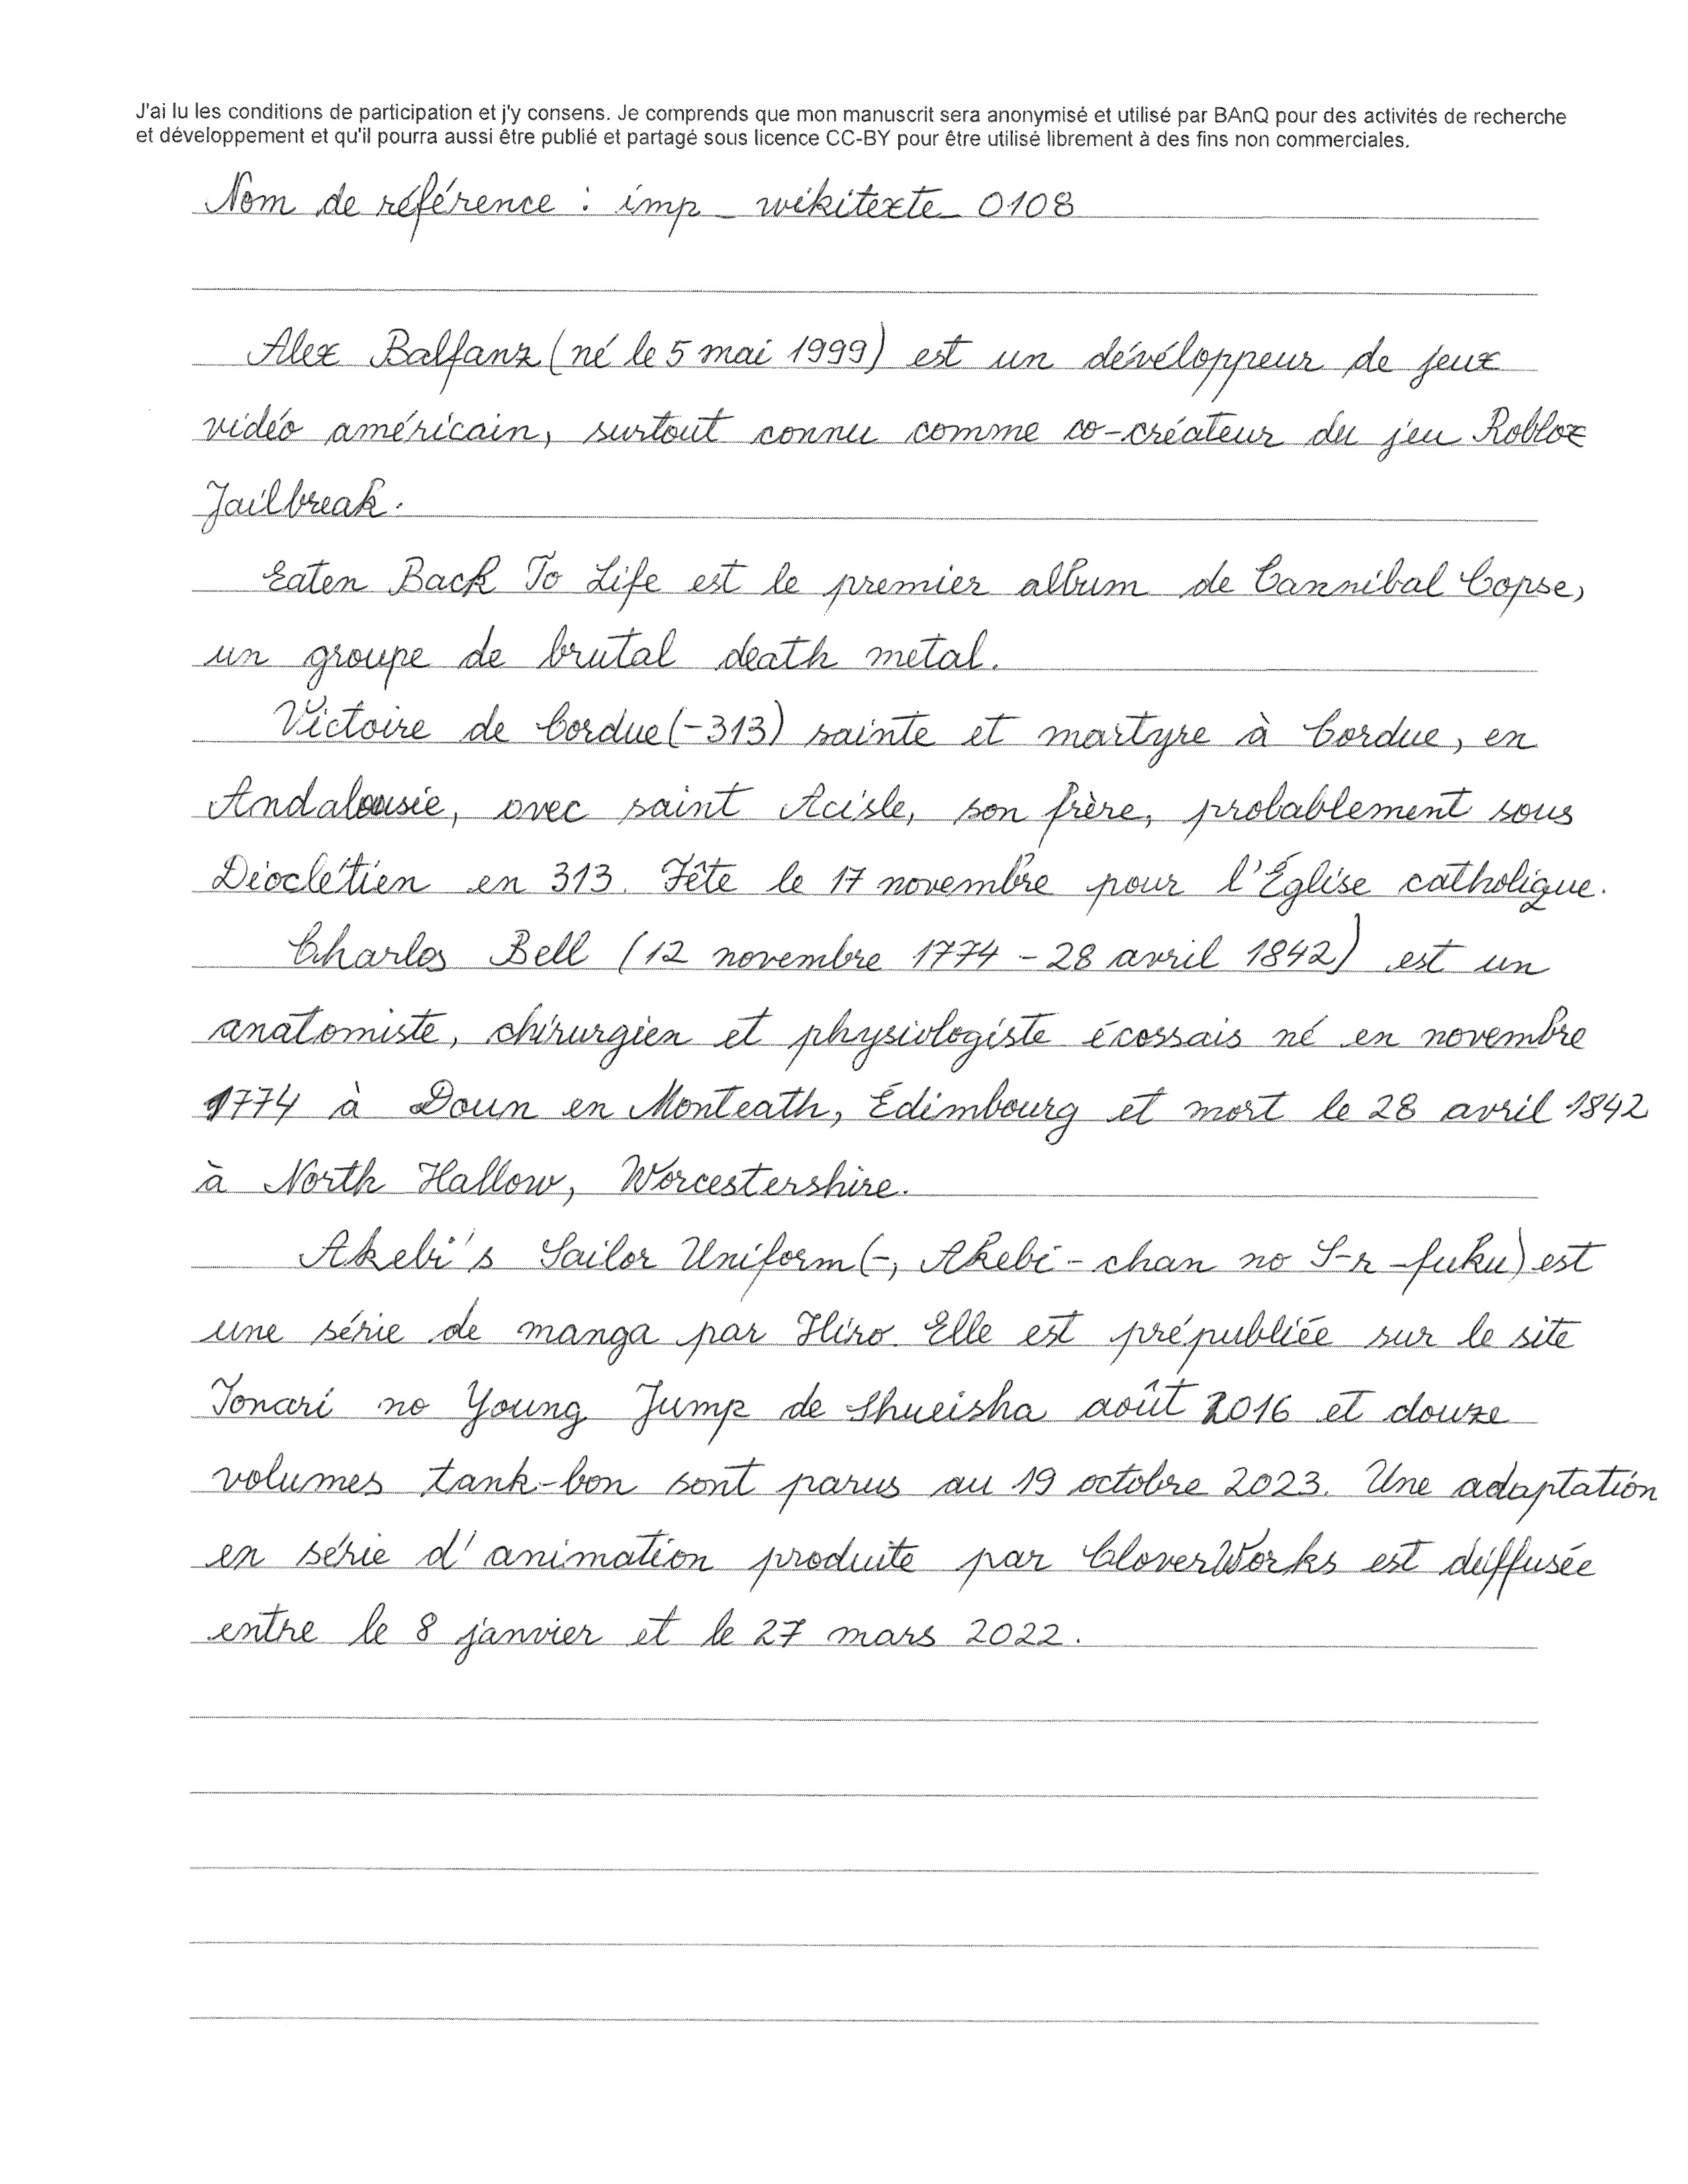 J'ai lu les conditions de participation et j'y consens. Je comprends que mon manuscrit sera anonymisé et utilisé par BAnQ pour des activités de recherche
et développement et qu'il pourra aussi être publié et partagé sous licence CC-BY pour être utilisé librement à des fins non commerciales.
Nom de référence : imp_wikitexte_0108
Alex Balfanz (né le 5 mai 1999) est un développeur de jeux
vidéo américain, surtout connu comme co-créateur du jeu Roblox
Jailbreak.
Eaten Back To Life est le premier album de Cannibal Copse,
un groupe de brutal death metal.
Victoire de Cordue (-313) sainte et martyre à Cordue, en
Andalousie, avec saint Acisle, son frère, probablement sous
Dioclétien en 313. Fête le 17 novembre pour l'Église catholique.
Charles Bell (12 novembre 1774 - 28 avril 1842) est un
anatomiste, chirurgien et physiologiste écossais né en novembre
1774 à Doun en Monteath, Édimbourg et mort le 28 avril 1842
à North Hallow, Worcestershire.
Akebi's Sailor Uniform (-, Akebi-chan no S-r-fuku) est
une série de manga par Hiro. Elle est prépubliée sur le site
Tonari no Young Jump de Shueisha août 2016 et douze
volumes tank-bon sont parus au 19 octobre 2023. Une adaptation
en série d'animation produite par CloverWorks est diffusée
entre le 8 janvier et le 27 mars 2022.